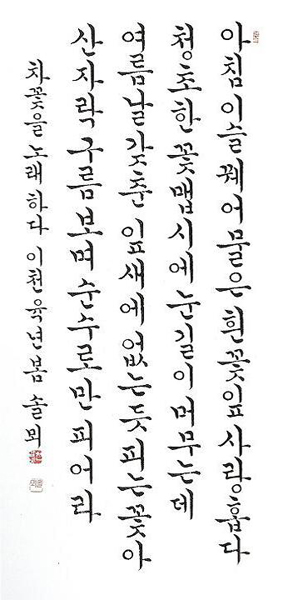 아침이슬 꿰어 물은 흰 꽃잎 사랑홉다
청초한 꽃맵시에 눈길이 머무는데
여름날 갖춘 잎새에 없는 듯 피는 꽃아
산자락 구름 보며 순수로만 피어라
차꽃을 노래하다 이천육년 봄 솔뫼